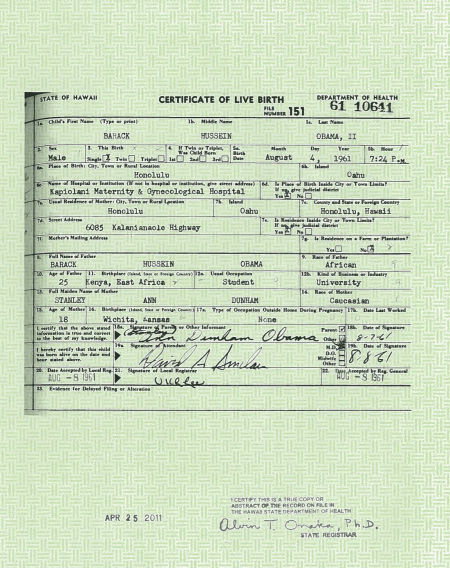 STATE OF HAWAII CERTIFICATE OF LIVE BIRTH DEPARTMENT OF HEALTH
FILE NUMBER 151 61 10641
1a. Child's First Name (Type or print) 1b. Middle Name 1c. Last Name
BARACK HUSSEIN OBAMA, II
2. Sex 3. This Birth 4. If Twin or Triplet, Was Child Born 5a. Birth Date Month Day Year 5b. Hour
Male Single X Twin Triplet 1st 2nd 3rd August 4, 1961 7:24 P.M.
6a. Place of Birth: City, Town or Rural Location 6b. Island
Honolulu Oahu
6c. Name of Hospital or Institution (If not in hospital or institution, give street address) 6d. Is Place of Birth Inside City or Town Limits? If no, give judicial district
Kapiolani Maternity & Gynecological Hospital Yes X No
7a. Usual Residence of Mother: City, Town or Rural Location 7b. Island 7c. County and State or Foreign Country
Honolulu Oahu Honolulu, Hawaii
7d. Street Address 7e. Is Residence Inside City or Town Limits? If no, give judicial district
6085 Kalanianaole Highway Yes X No
7f. Mother's Mailing Address 7g. Is Residence on a Farm or Plantation?
Yes No X
8. Full Name of Father 9. Race of Father
BARACK HUSSEIN OBAMA African
10. Age of Father 11. Birthplace (Island, State or Foreign Country) 12a. Usual Occupation 12b. Kind of Business or Industry
25 Kenya, East Africa Student University
13. Full Maiden Name of Mother 14. Race of Mother
STANLEY ANN DUNHAM Caucasian
15. Age of Mother 16. Birthplace (Island, State or Foreign Country) 17a. Type of Occupation Outside Home During Pregnancy 17b. Date Last Worked
18 Wichita, Kansas None
I certify that the above stated information is true and correct to the best of my knowledge. 18a. Signature of Parent or Other Informant Parent Other 18b. Date of Signature
Dunham Obama 8-7-61
I hereby certify that this child was born alive on the date and hour stated above. 19a. Signature of Attendant M.D. D.O. Midwife Other 19b. Date of Signature
David A Sinclair 8-8-61
20. Date Accepted by Local Reg. 21. Signature of Local Registrar 22. Date Accepted by Reg. General
AUG -8 1961 AUG -8 1961
23. Evidence for Delayed Filing or Alteration
APR 25 2011
I CERTIFY THIS IS A TRUE COPY OR
ABSTRACT OF THE RECORD ON FILE IN
THE HAWAII STATE DEPARTMENT OF HEALTH
Alvin T. Onaka, Ph.D.
STATE REGISTRAR